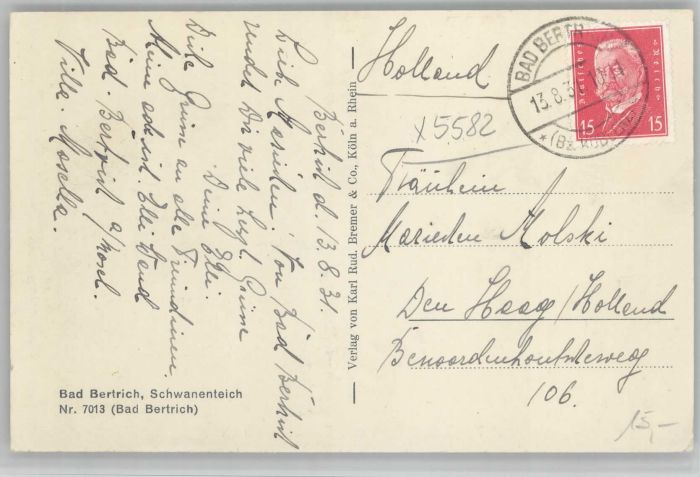 Bertrich d. 13.8.31.
Lieb Marieden! Von Bad Bertrich
sendet Dir viele Grüße
Deine Elli.
Viele Grüsse an alle Freundinnen.
Meine adr. ist Elli Wend
Bad. Bertrich a/Mosel.
Villa Mosella.
Bad Bertrich, Schwanenteich
Nr. 7013 (Bad Bertrich)
Verlag von Karl Rud. Bremer & Co., Köln a. Rhein
Holland
x5582
BAD BERTR
13.8.31
* (Bz.
Deutsches Reich
15 15
Fräulein
Marieden Molski
Den Haag/Holland
Benoordenhoutseweg
106.
15,-